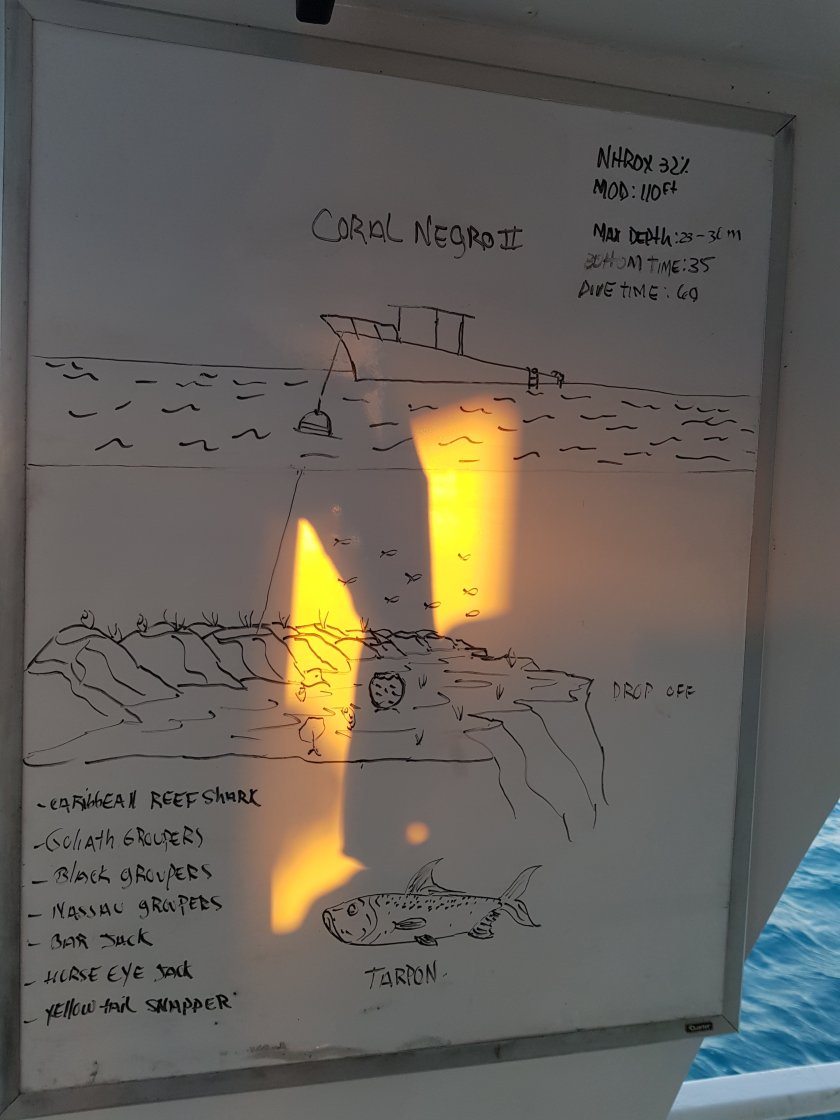 NHROX 32%
MOD: 110Ft
CORAL NEGRO II
MAX DEPTH:
BOTTOM TIME: 35
DIVE TIME: 60
DROP OFF
- CARIBBEAN REEF SHARK
- GOLIATH GROUPERS
- BLACK GROUPERS
- NASSAU GROUPERS
- BAR JACK
- HORSE EYE JACK
- YELLOW tAIL SNAPPER
TARPON.